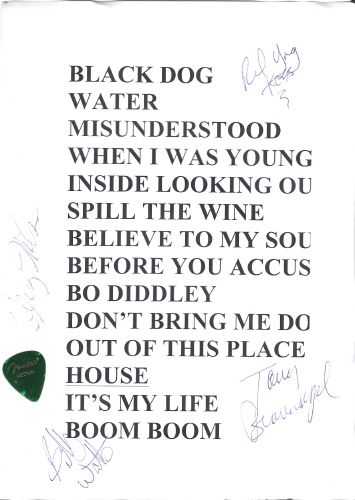 BLACK DOG
WATER
MISUNDERSTOOD
WHEN I WAS YOUNG
INSIDE LOOKING OU
SPILL THE WINE
BELIEVE TO MY SOU
BEFORE YOU ACCUS
BO DIDDLEY
DON'T BRING ME DO
OUT OF THIS PLACE
HOUSE
IT'S MY LIFE
BOOM BOOM
Fender
MEDIUM
Tony
Braunagel